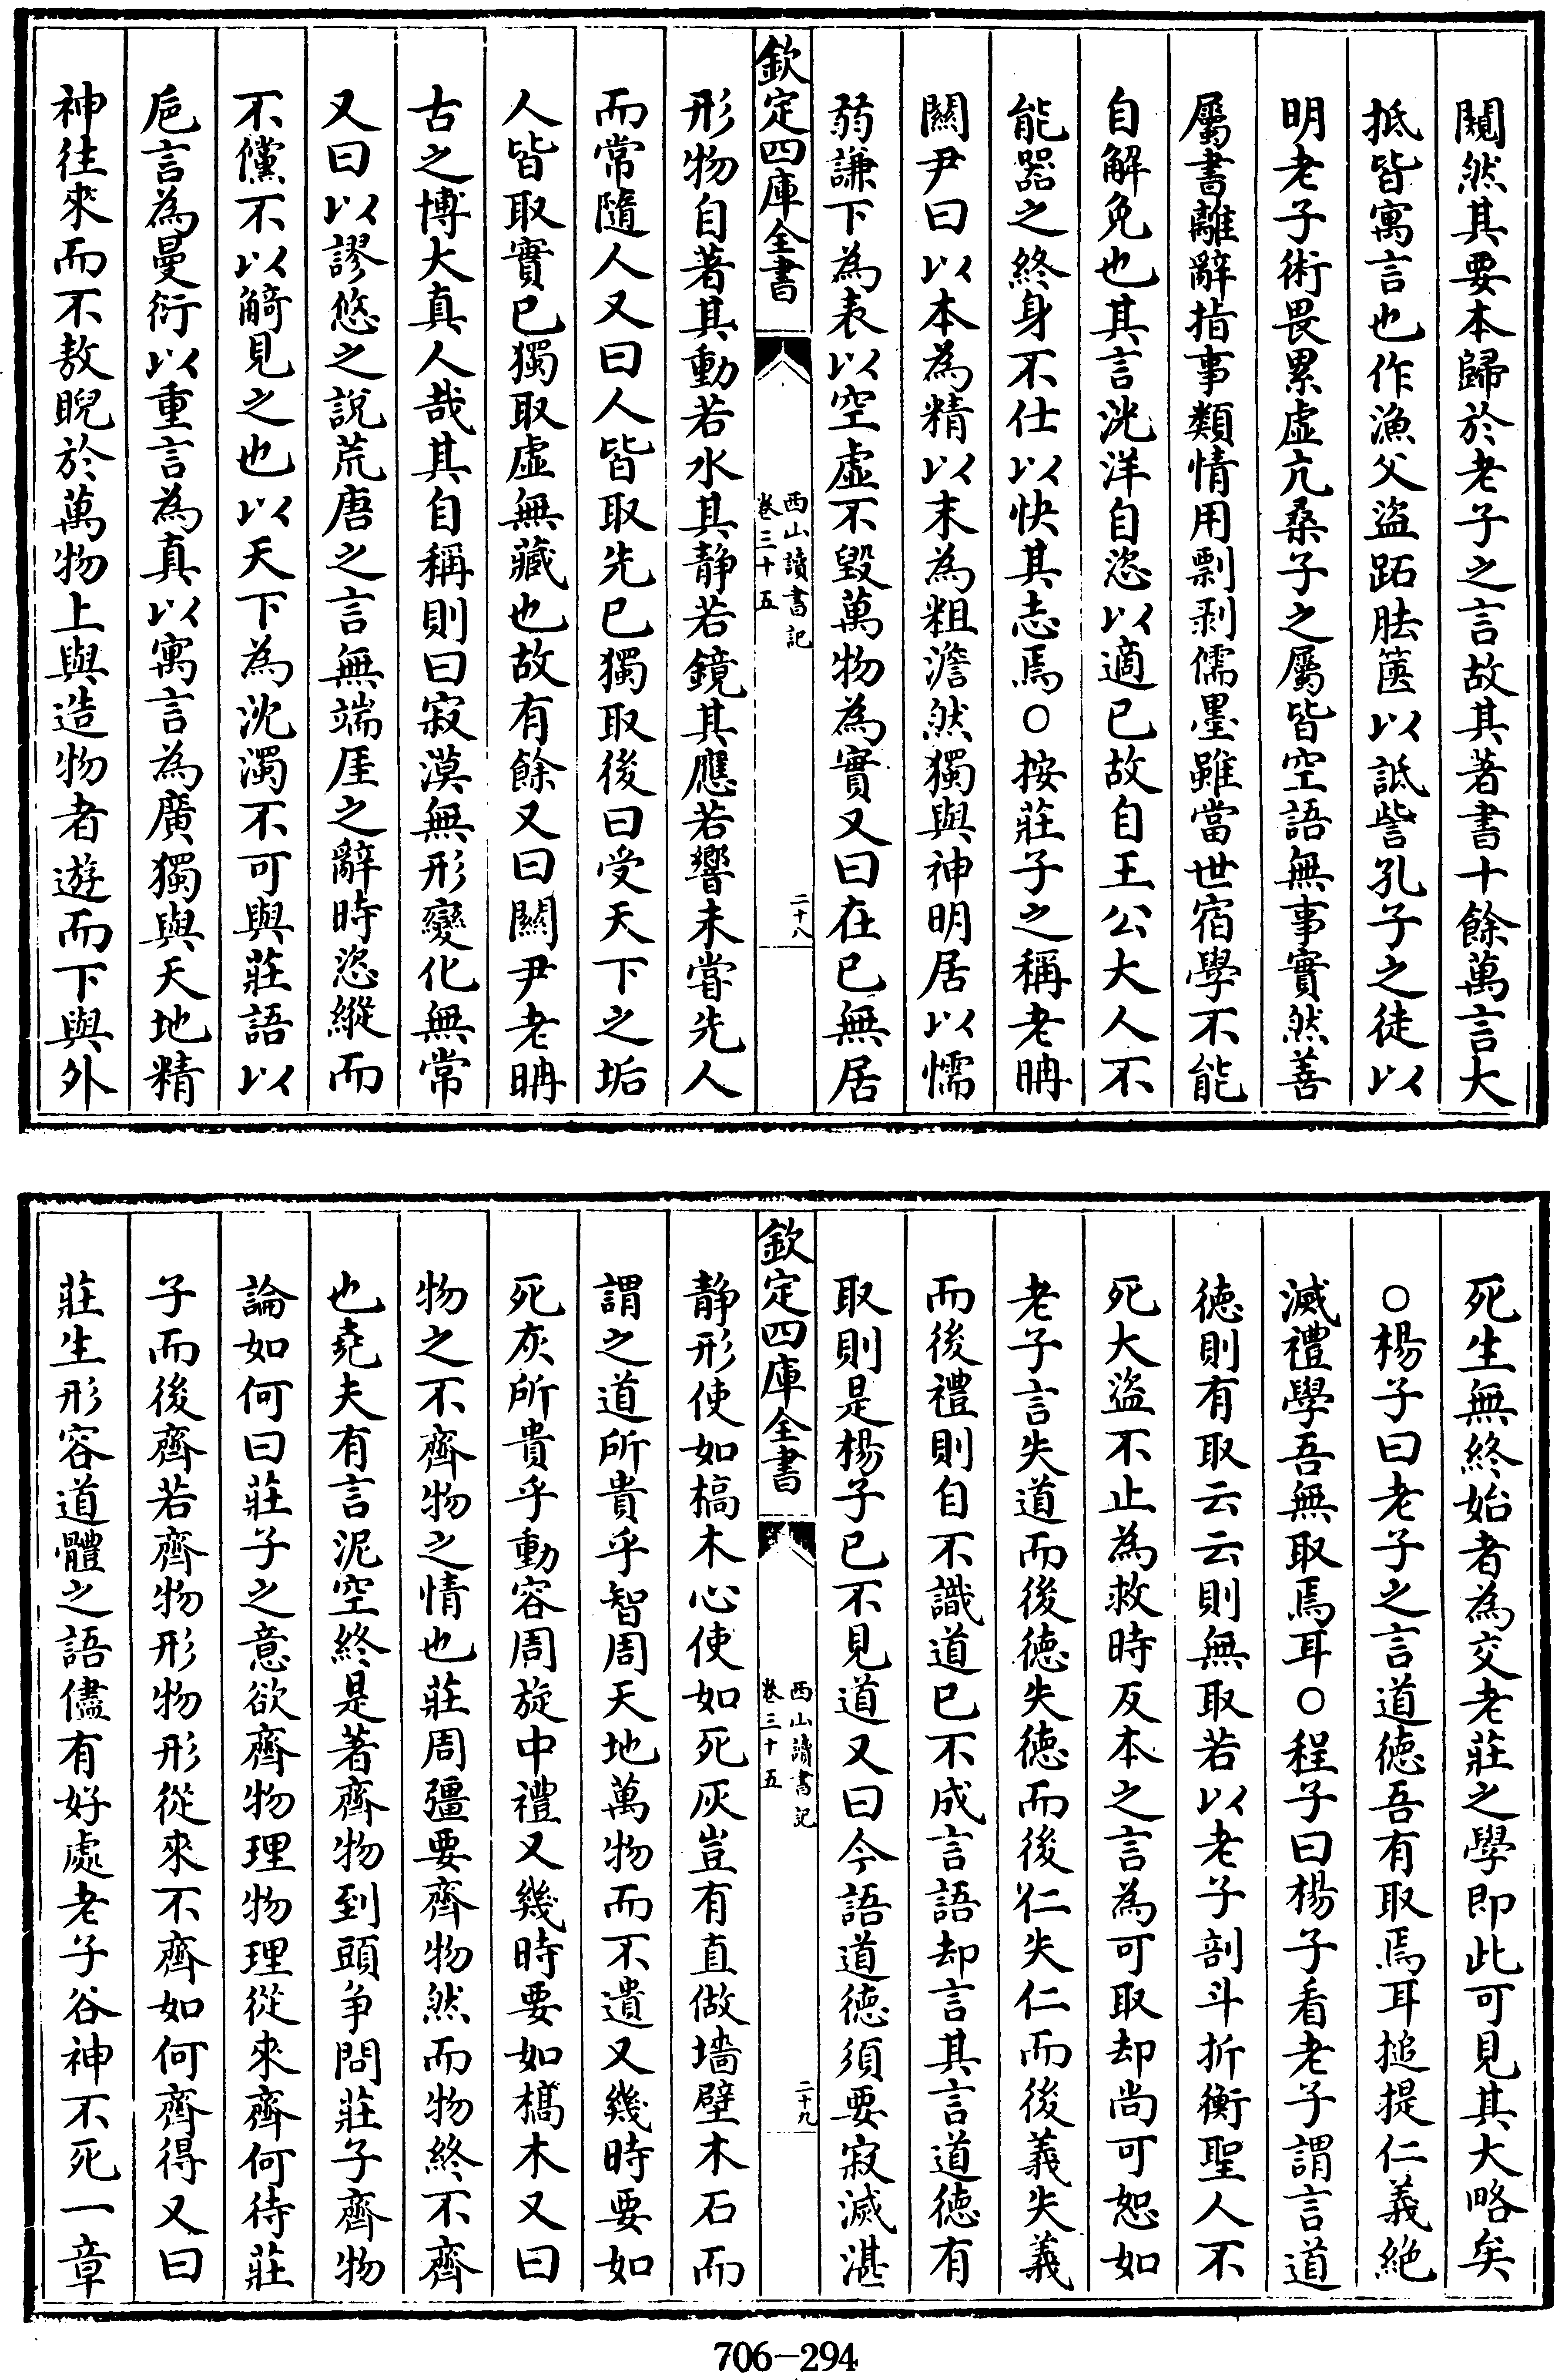 闚然其要本歸於老子之言故其著書十餘萬言大
抵皆寓言也作漁父盜跖胠篋以詆訾孔子之徒以
明老子術畏累虛亢桑子之屬皆空語無事實然善
屬書離辭指事類情用剽剥儒墨雖當世宿學不能
自解免也其言洸洋自恣以適已故自王公大人不
能器之終身不仕以快其志焉○按莊子之稱老聃
關尹曰以本為精以末為粗澹然獨與神明居以懦
弱謙下為表以空虛不毀萬物為實又曰在已無居
欽定四庫全書
西山讀書記
卷三十五
二十八
形物自著其動若水其靜若鏡其應若響未嘗先人
而常隨人又曰人皆取先已獨取後曰受天下之垢
人皆取實已獨取虛無藏也故有餘又曰關尹老聃
古之博大真人哉其自稱則曰寂漠無形變化無常
又曰以謬悠之說荒唐之言無端厓之辭時恣縱而
不儻不以觭見之也以天下為沈濁不可與莊語以
巵言為曼衍以重言為真以寓言為廣獨與天地精
神往來而不敖睨於萬物上與造物者遊而下與外
死生無終始者為交老莊之學即此可見其大略矣
○楊子曰老子之言道徳吾有取焉耳搥提仁義絶
滅禮學吾無取焉耳○程子曰楊子看老子謂言道
徳則有取云云則無取若以老子剖斗折衡聖人不
死大盜不止為救時反本之言為可取却尚可恕如
老子言失道而後徳失徳而後仁失仁而後義失義
而後禮則自不識道已不成言語却言其言道徳有
取則是楊子已不見道又曰今語道徳須要寂滅湛
欽定四庫全書
西山讀書記
卷三十五
二十九
靜形使如槁木心使如死灰豈有直做墻壁木石而
謂之道所貴乎智周天地萬物而不遺又幾時要如
死灰所貴乎動容周旋中禮又幾時要如槁木又曰
物之不齊物之情也莊周彊要齊物然而物終不齊
也堯夫有言泥空終是著齊物到頭争問莊子齊物
論如何曰莊子之意欲齊物理物理從來齊何待莊
子而後齊若齊物形物形從來不齊如何齊得又曰
莊生形容道體之語儘有好處老子谷神不死一章
706-294